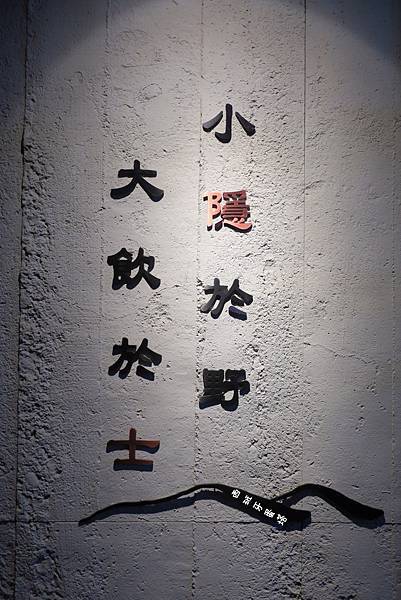 小隱於野
大飲於士